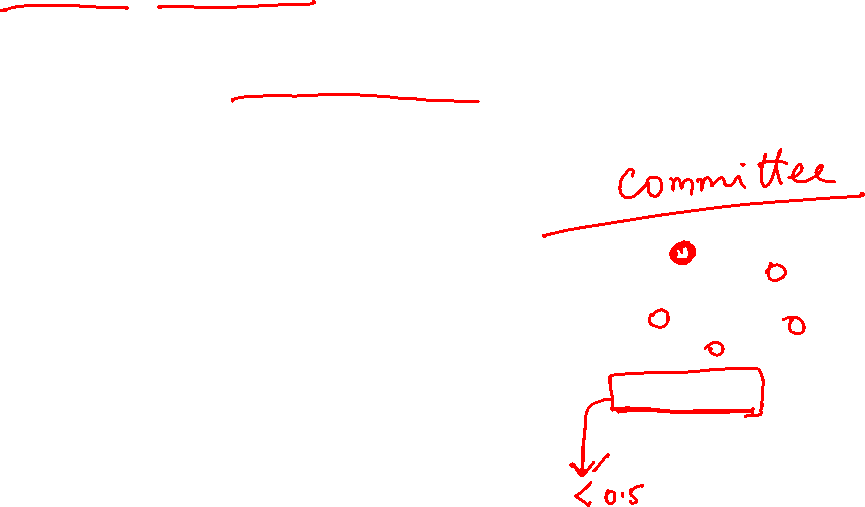 committee
< 0.5